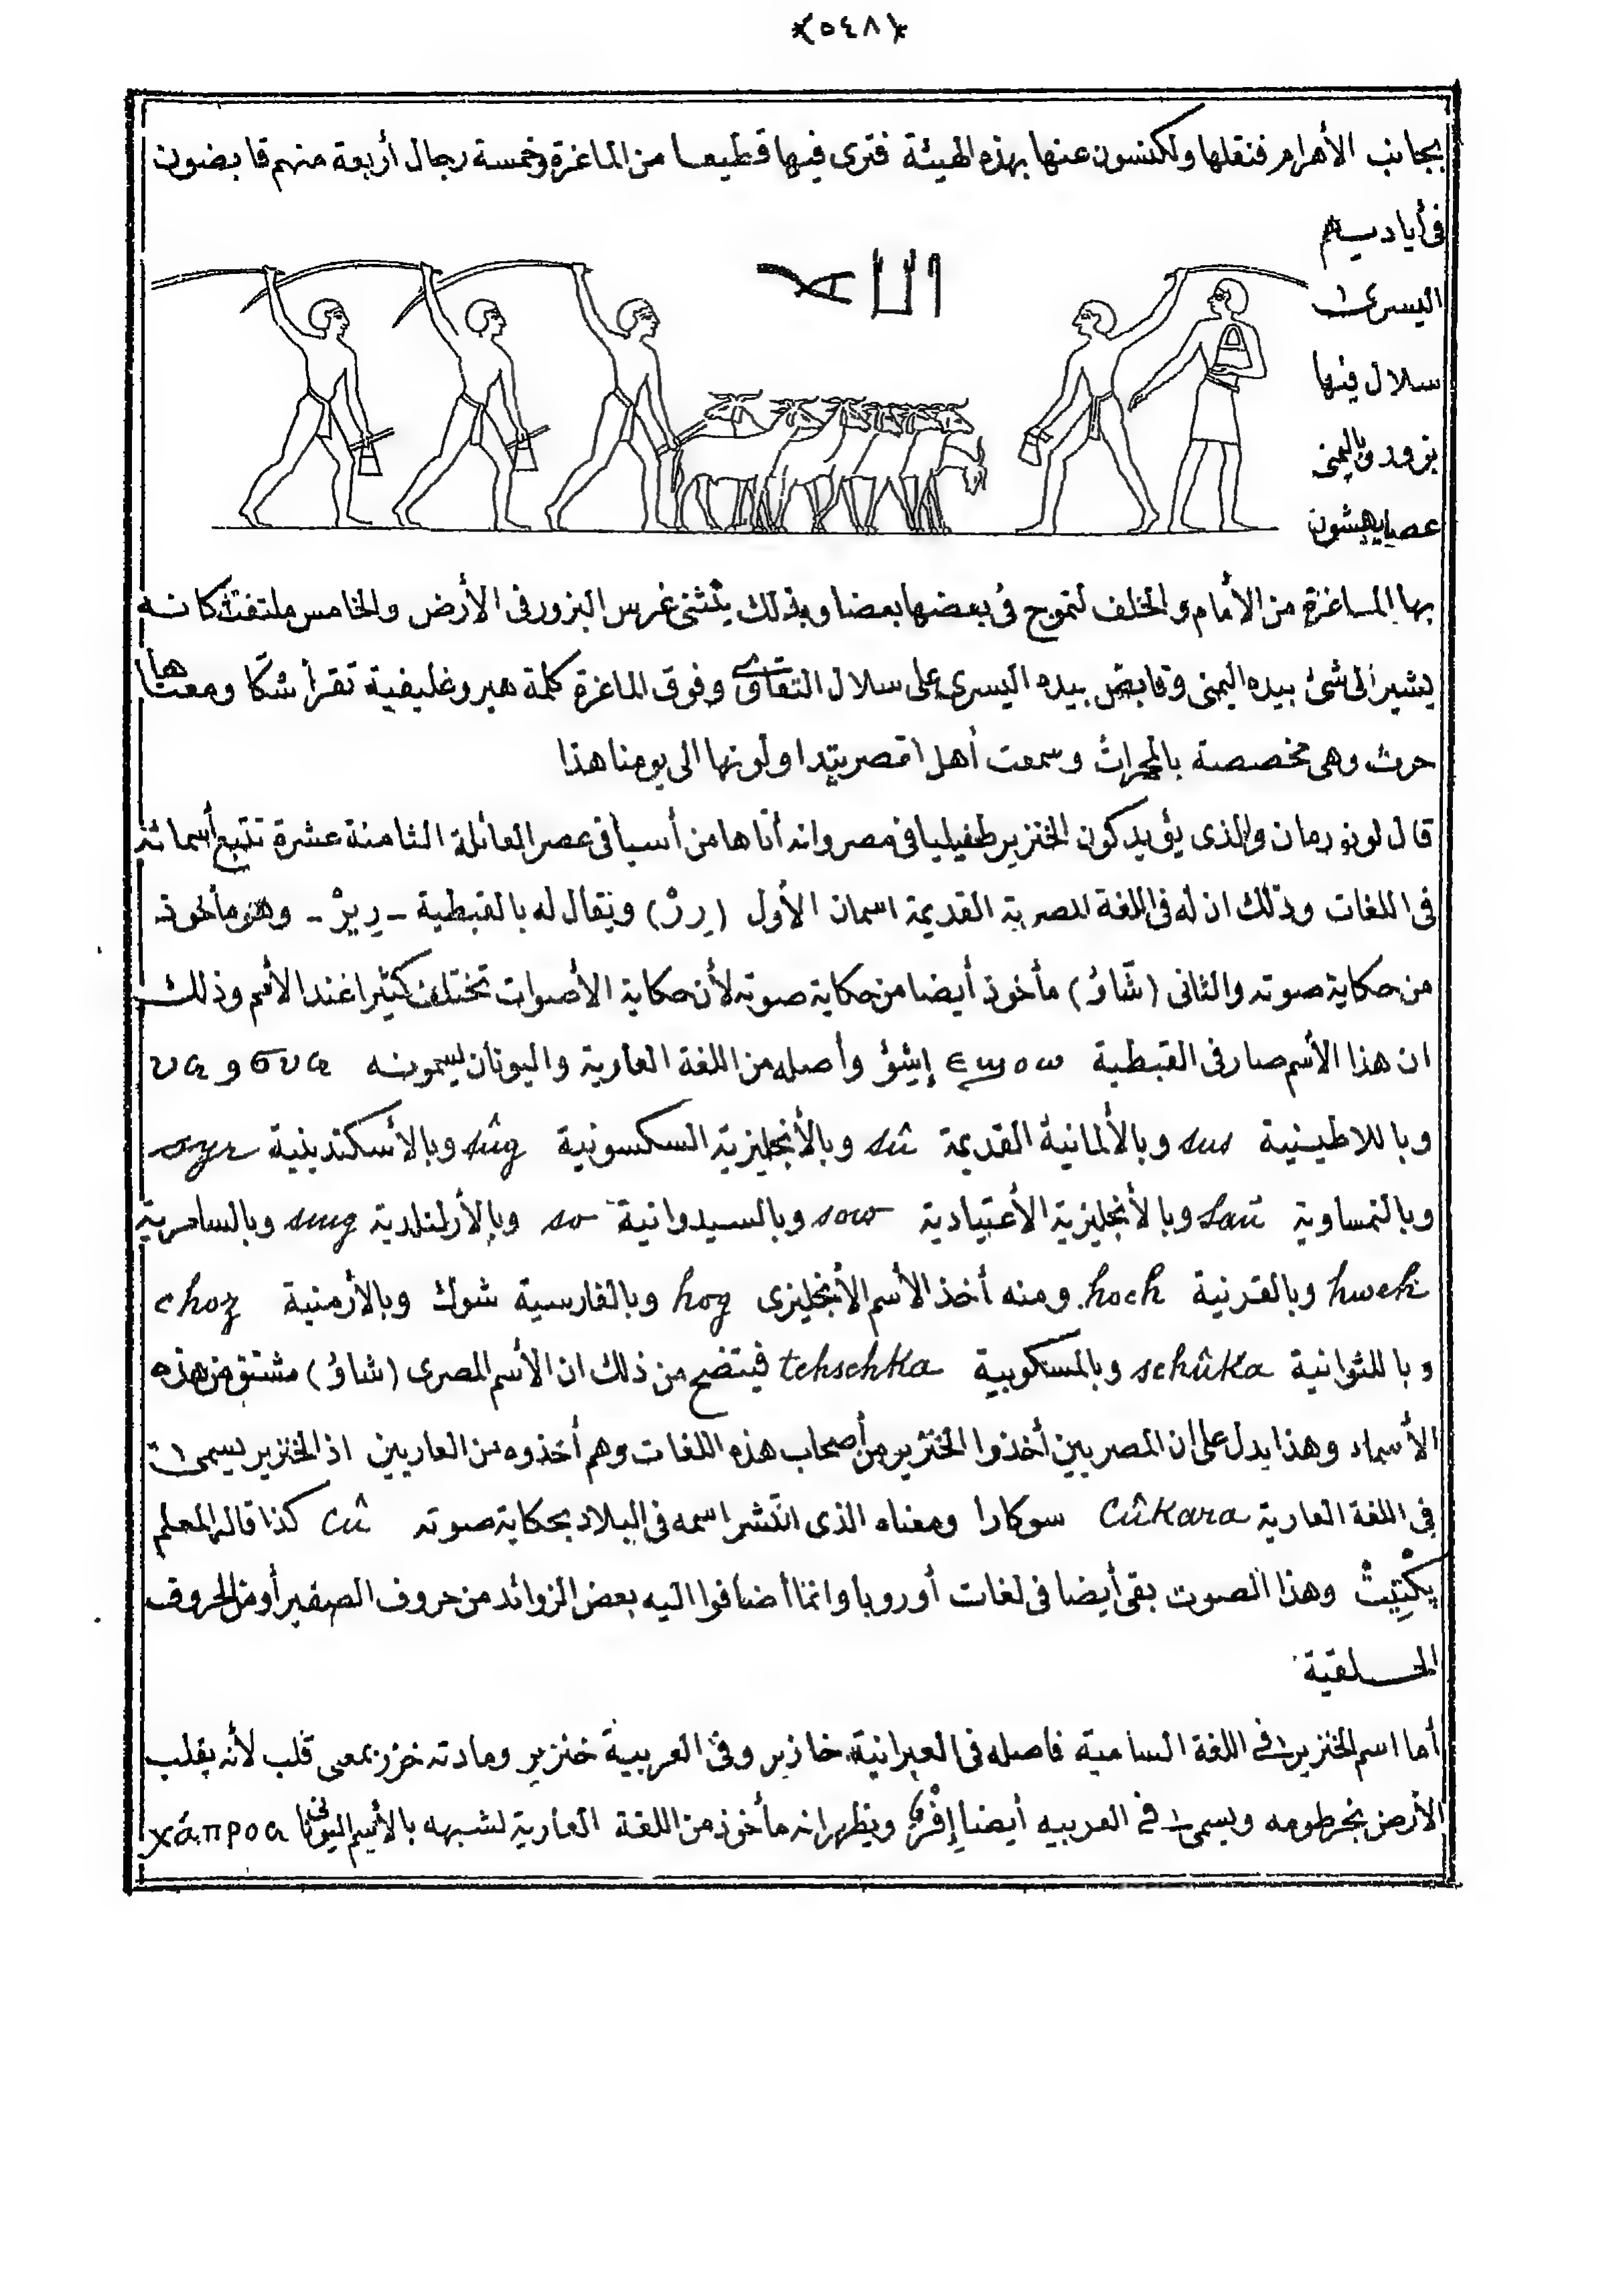 ﴿٥٤٨﴾
بجانب الأهرام فنقلها ولكنسون عنها بهذه الهيئة فترى فيها قطيعا من الماعزة وخمسة رجال أربعة منهم قابضون
فى أياديهم
اليسرى
سلال فيها
بزور وباليمنى
عصايهشون
بها الماعزة من الأمام والخلف لتموج فى بعضها بعضا وبذلك يتثنى غرس البزور فى الأرض والخامس ملتفت كانه
يشير الى شئ بيده اليمنى وقابض بيده اليسرى على سلال التقاوى وفوق الماعزة كلمة هيروغليفية تقرأ شكا ومعناها
حرث وهى مخصصة بالمحراث وسمعت أهل اقصر يتداولونها الى يومنا هذا
قال لونورمان والذى يؤيد كون الخنزير طفيليا فى مصر وانه أتاها من أسيا فى عصر العائلة الثامنة عشرة تتبع أسمائه
فى اللغات وذلك ان له فى اللغة المصرية القديمة اسمان الأول (رِرْ) ويقال له بالقبطية - رِيرْ - وهو مأخوذ
من حكاية صوته والثانى (شَاوُ) مأخوذ أيضا من حكاية صوته لأن حكاية الأصوات تختلف كثيرا عند الأمم وذلك
ان هذا الأسم صار فى القبطية ⲉϣⲟⲱ إيشؤ وأصله من اللغة العارية واليونان يسمونه συα و υα
وباللاطينية sus وبالألمانية القديمة sû وبالأنجليزية السكسونية sûg وبالأسكندينية syr
وبالنمساوية saü وبالأنجليزية الأعتيادية sow وبالسيدوانية so وبالأرلندية suig وبالسامرية
hweh وبالقرنية hoch ومنه أخذ الأسم الأنجليزى hog وبالفارسية شوك وبالأرمنية choz
وباللثوانية schûka وبالمسكوبية tchschka فيتضح من ذلك ان الأسم المصرى (شاوُ) مشتق من هذه
الأسماء وهذا يدل على ان المصريين أخذوا الخنزير من أصحاب هذه اللغات وهم أخذوه من العاريين اذ الخنزير يسمى
فى اللغة العارية Cûkara سوكارا ومعناه الذى انتشر اسمه فى البلاد بحكاية صوته Cû كذا قاله المعلم
پكْتِيتْ وهذا الصوت بقى أيضا فى لغات أوروبا وانما أضافوا اليه بعض الزوائد من حروف الصفير أو من الحروف
الحلقية
أما اسم الخنزير فى اللغة السامية فاصله فى العبرانية خازير وفى العربية خنزير ومادته خزر بمعنى قلب لأنه يقلب
الأرض بخرطومه ويسمى فى العربيه أيضا إِفْرٌ ويظهر انه مأخوذ من اللغة العارية لشبهه بالأسم اليونانى χάπροα